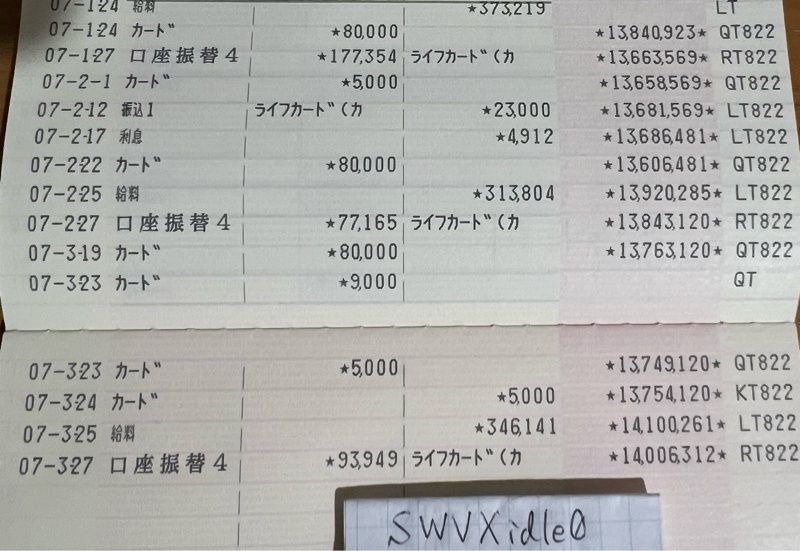 07-1-24 給料 ★373,219 LT
07-1-24 カード ★80,000 ★13,840,923★ QT822
07-1-27 口座振替4 ★177,354 ライフカード(カ ★13,663,569★ RT822
07-2-1 カード ★5,000 ★13,658,569★ QT822
07-2-12 振込1 ライフカード(カ ★23,000 ★13,681,569★ LT822
07-2-17 利息 ★4,912 ★13,686,481★ LT822
07-2-22 カード ★80,000 ★13,606,481★ QT822
07-2-25 給料 ★313,804 ★13,920,285★ LT822
07-2-27 口座振替4 ★77,165 ライフカード(カ ★13,843,120★ RT822
07-3-19 カード ★80,000 ★13,763,120★ QT822
07-3-23 カード ★9,000 QT
07-3-23 カード ★5,000 ★13,749,120★ QT822
07-3-24 カード ★5,000 ★13,754,120★ KT822
07-3-25 給料 ★346,141 ★14,100,261★ LT822
07-3-27 口座振替4 ★93,949 ライフカード(カ ★14,006,312★ RT822
SWVXidle0